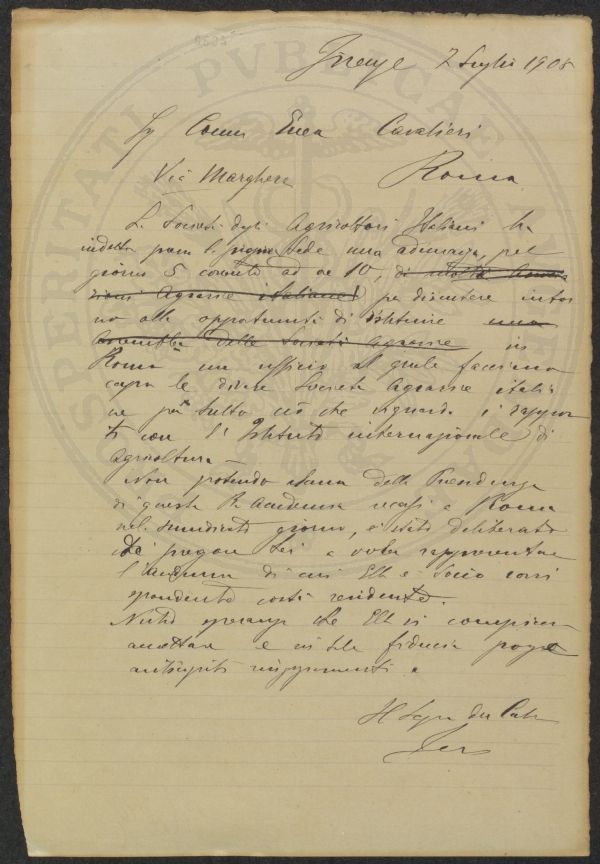 Firenze 2 Luglio 1908
Sig Comm Enea Cavalieri
Via Marghera Roma
La Società degli Agricoltori Italiani ha
indetto presso la propria Sede una adunanza, pel
giorno 5 corrente ad ore 10, di
Agrarie italiane per discutere intor
no alla opportunità di istituire una
assemblea delle Società Agrarie in
Roma un ufficio al quale facciano
capo le diverse Società Agrarie italia
ne per tutto ciò che riguarda i rappor
ti con l'Istituto internazionale di
Agricoltura
Non potendo alcuno della Presidenza
di questa R. Accademia recarsi a Roma
nel suindicato giorno, è stato deliberato
di pregare Lei a voler rappresentare
l'Accademia di cui Ella è Socio corri
spondente costì residente.
Nutro speranza che Ella si compiacerà
accettare e in tale fiducia porgo
anticipati ringraziamenti.
Il Segr